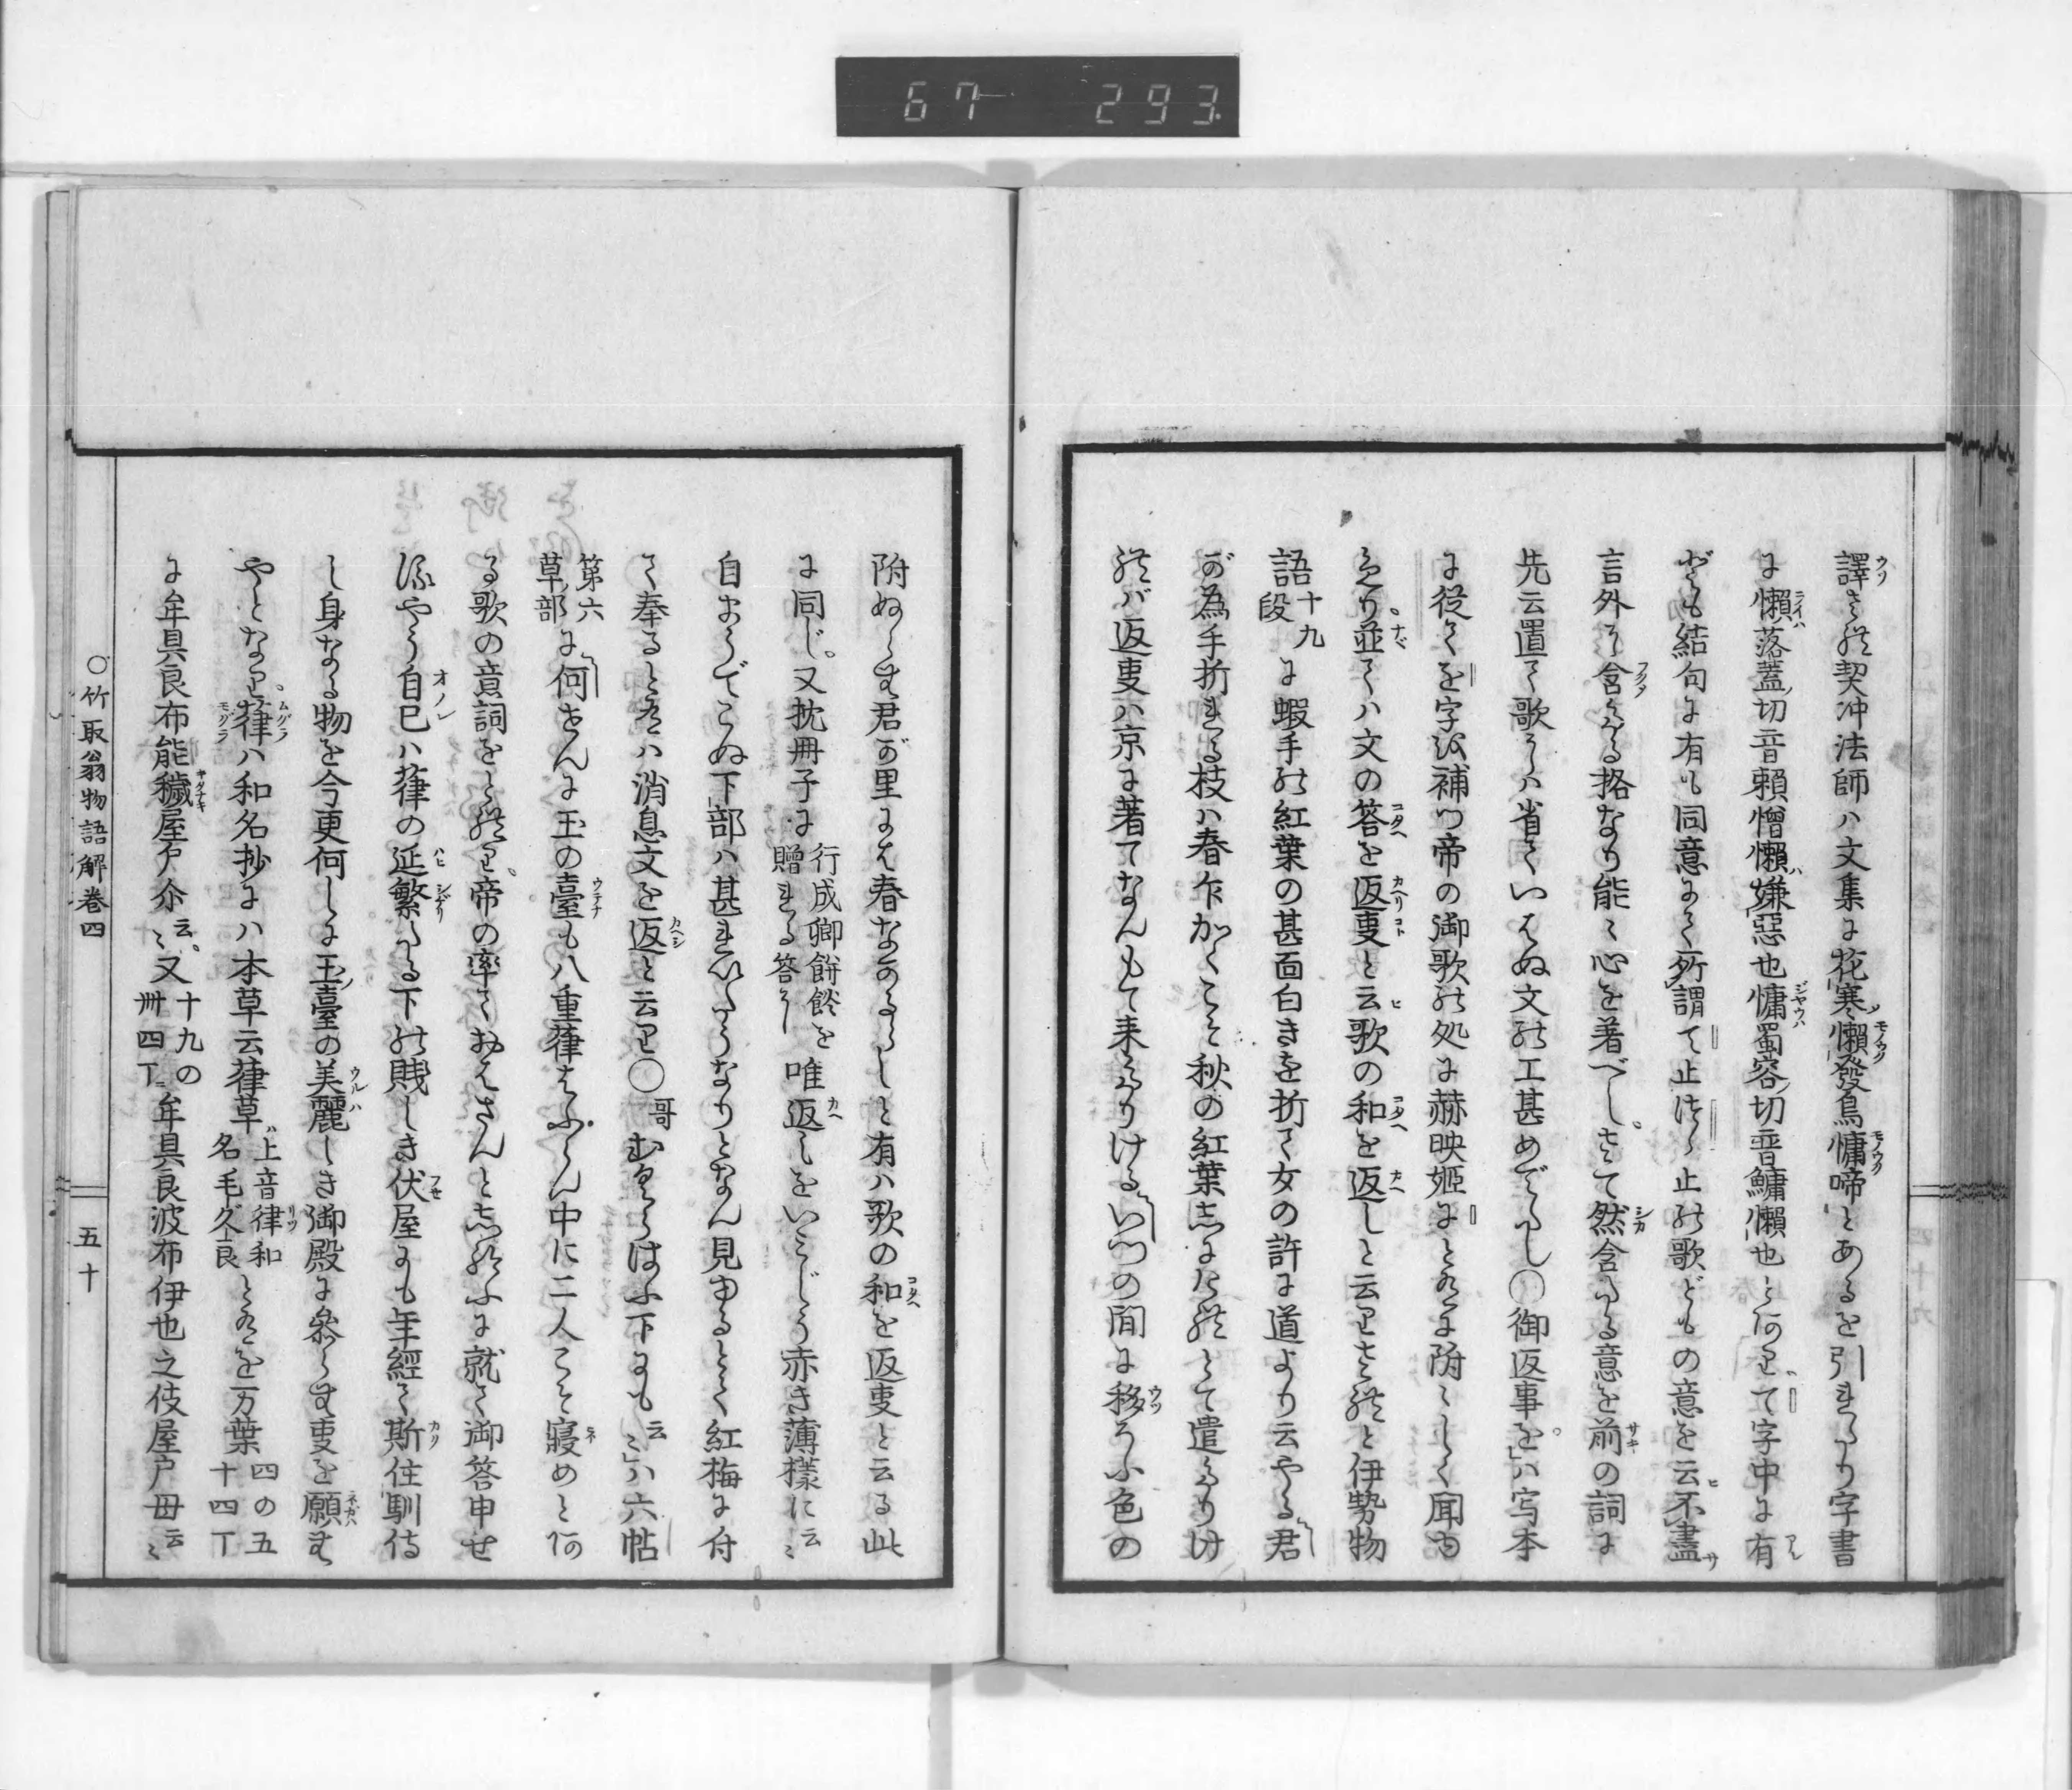 67 293
譯され契沖法師ハ文集に花寒懶發鳥慵啼とあるを引れたり字書
に懶落蓋切音頼憎懶嫌惡也慵蜀容切音鱅懶也とありて字中に有
ども結句に有も同意にて所謂て止つゝ止の歌どもの意を云不盡
言外に含たる格なり能々心を著べしさて然含たる意を前の詞に
先云置て歌にハ省ていはぬ文の工甚めでたし〇御返事をハ写本
に従てを字を補つ帝の御歌の処に赫映姫にとあるに附々しく聞ゆ
るなり並てハ文の答を返事と云歌の和を返しと云りされと伊勢物
語十九段に蝦手の紅葉の甚面白きを折て女の許に道より云やる君
が為手折れる枝ハ春乍かくこそ秋の紅葉しにけれとて遣たりけ
れバ返事ハ京に著てなんもて来たりけるいつの間に移ろふ色の
附ぬらむ君が里にハ春なかるらしと有ハ歌の和を返事と云る此
に同じ又枕冊子に行成卿餅餤を贈れる答に唯返しをいみじう赤き薄様に云々
自まうでこぬ下部ハ甚れいたうなりとなん見ゆるとて紅梅に付
て奉るとあるハ消息文を返と云り〇哥むぐらはふ下にも云々ハ六帖
第六草部に何せんに玉の臺も八重葎はふらん中に二人こそ寢めとあ
る歌の意詞をとれり帝の率ておはさんとし給ふに就て御答申せ
るやう自己ハ葎の延繁たる下の賎しき伏屋にも年經て斯住馴侍
し身なる物を今更何しに玉臺の美麗しき御殿に参らむ事を願はむ
やとなり葎ハ和名抄にハ本草云葎草上音律和名毛久良とあるを万葉四の五十四丁
に牟具良布能穢屋戸尒云々又十九の卅四丁牟具良波布伊也之伎屋戸母云々
〇竹取翁物語解巻四 五十